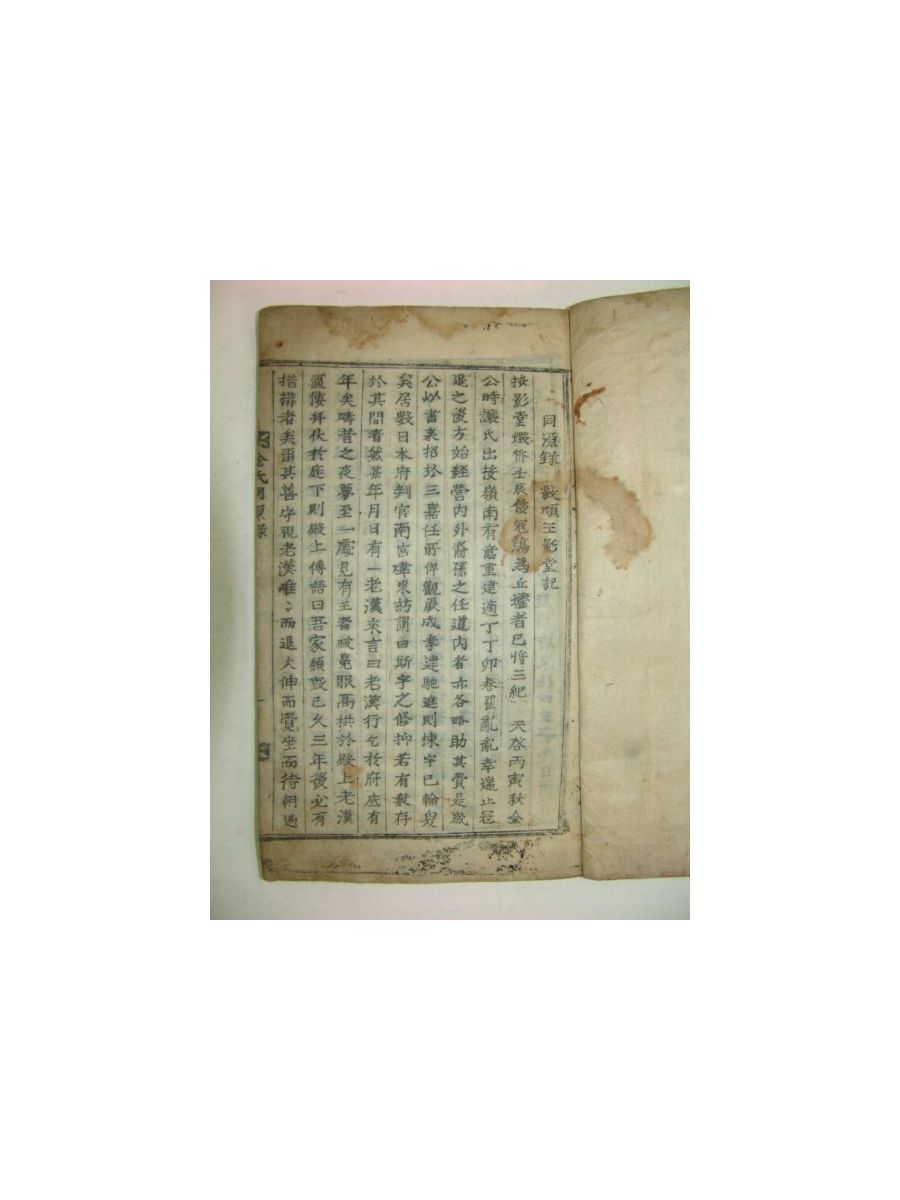 同源錄 敬順王影堂記
按影堂燬於壬辰倭冦蕩為丘墟者已將三紀 天啓丙寅秋金
公時讓氏出按嶺南有意重建適丁丁卯春亂亂幸遄止冦
退之後方始經營內外裔孫之任道內者亦各略助其費是歲
公以書来招於三嘉任所俾觀厥成季建馳進則棟宇已輪奐
矣居數日本府判官南宮來訪謂曰斯宇之修抑若有數存
於其間者就某年月日有一老漢來言曰老漢行乞於府底有
年矣疇昔之夜夢至一處見有王者被冕服高拱於殿上老漢
傴僂拜伏於庭下則殿上傳語曰吾家頹毀已久三年後必有
措搆者矣爾其善守視老漢唯〻而退欠伸而覺坐而待朝遄
金氏同源錄